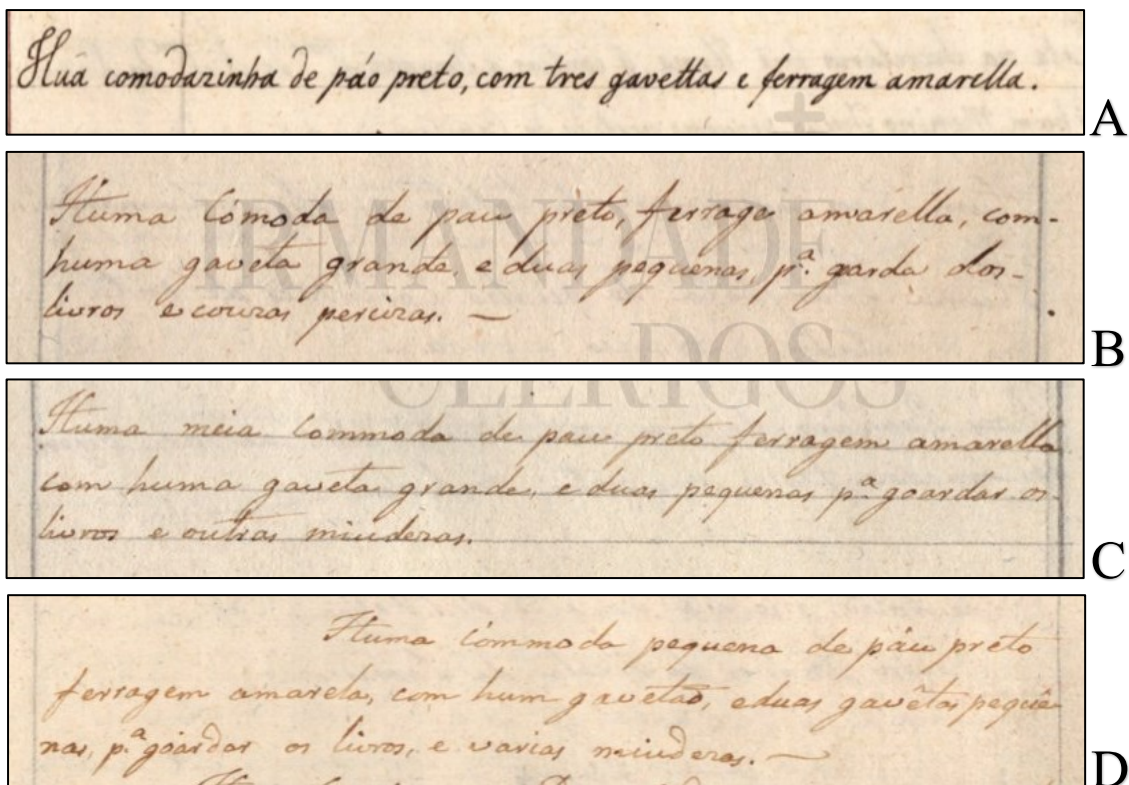 Huã comodazinha de páo preto, com tres gavettas e ferragem amarella.
A
Huma Cómoda de pau prèto, ferrage amarella, com-
huma gaveta grande, e duas pequenas, pª. garda dos-
livros e couzas percizas. —
B
IRMANDADE
DOS
CLERIGOS
Huma meia Commoda de pau preto ferragem amarella
com huma gaveta grande, e duas pequenas pª. goardar os-
livros e outras miudezas.
C
Huma Cómmoda pequena de páu preto
ferragem amarela, com hum gavetaõ, e duas gavêtas pequê-
nas, pª. goardar os livros, e varias miudezas. —
D